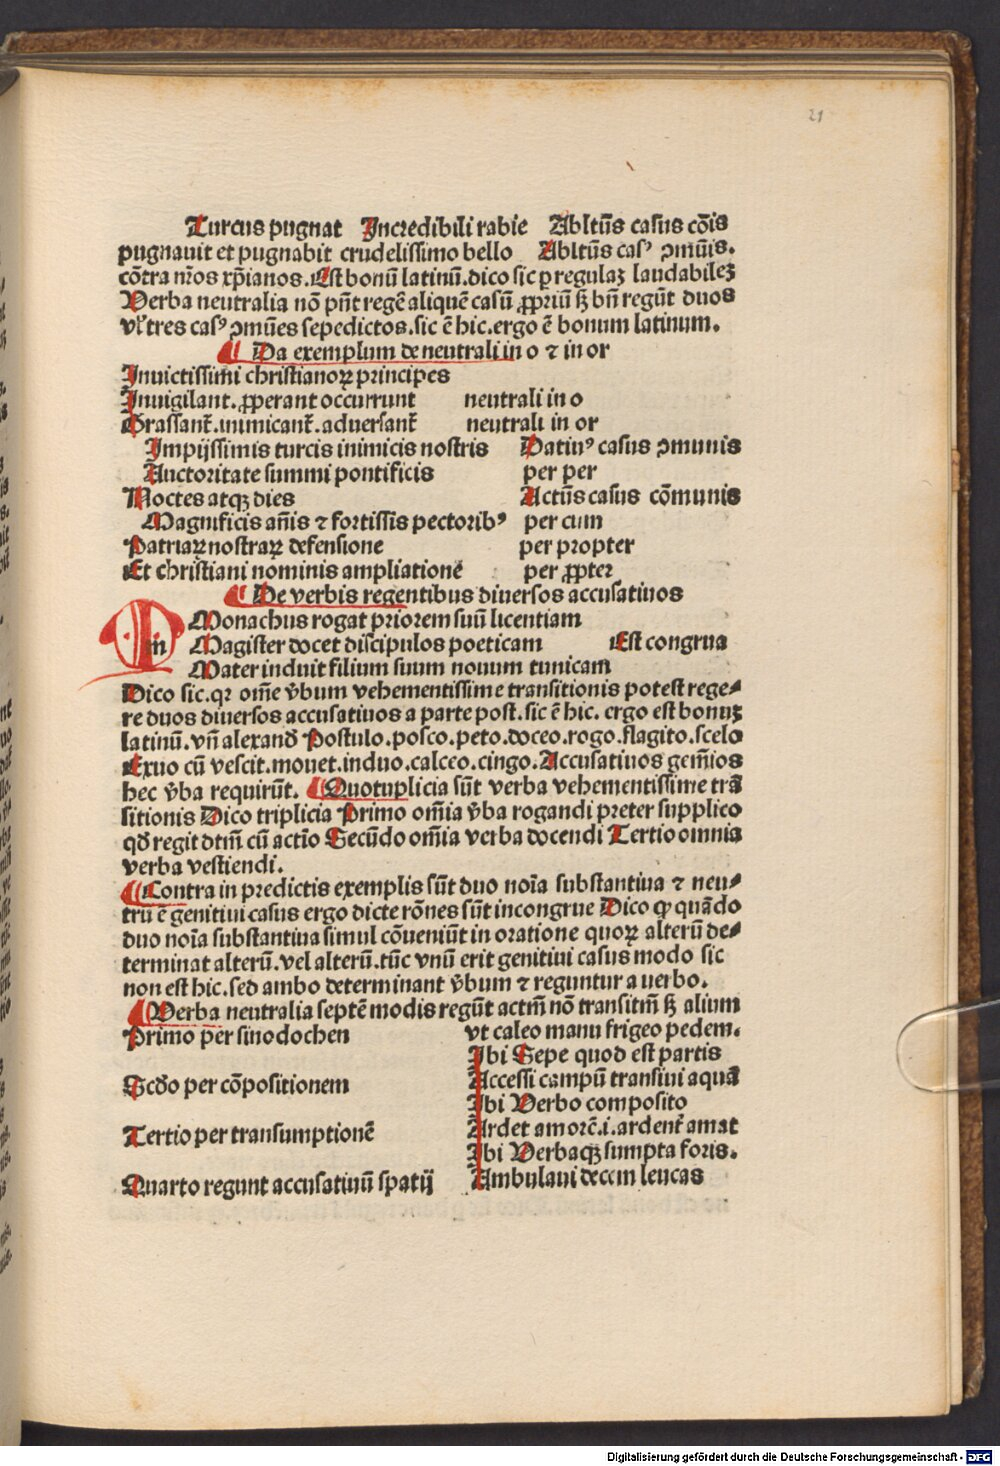 21
Turcus pugnat Incredibili rabie Abltūs casus cōis
pugnauit et pugnabit crudelissimo bello Abltūs casꝰ ꝯmūis.
cōtra nr̄os xp̄ianos. Est bonū latinū. dico sic ꝑ regulaꝫ laudabileꝫ
Verba neutralia nō pn̄t regē aliquē casū ꝓpriū sꝫ bn̄ regūt duos
vl̄ tres casꝰ ꝯmūes sepedictos. sic ē hic. ergo ē bonum latinum.
¶ Da exemplum de neutrali in o ⁊ in or
Inuictissimi christianoꝝ principes
Inuigilant. ꝓperant occurrunt neutrali in o
Grassant᷑. inimicant᷑. aduersant᷑ neutrali in or
Impijssimis turcis inimicis nostris Datiuꝰ casus ꝯmunis
Auctoritate summi pontificis per per
Noctes atqꝫ dies Actūs casus cōmunis
Magnificis aīis ⁊ fortissīs pectoribꝰ per cum
Patriaꝝ nostraꝝ defensione per propter
Et christiani nominis ampliatione per ꝓpter
¶ De verbis regentibus diuersos accusatiuos
m Monachus rogat priorem suū licentiam
Magister docet discipulos poeticam Est congrua
Mater induit filium suum nouum tunicam
Dico sic. qꝛ om̄e v̄bum vehementissime transitionis potest rege⸗
re duos diuersos accusatiuos a parte post. sic ē hic. ergo est bonuꝫ
latinū. vn̄ alexand̄ Postulo. posco. peto. doceo. rogo. flagito. scelo
Exuo cū vescit. mouet. induo. calceo. cingo. Accusatiuos gem̄ios
hec v̄ba requirūt. ¶ Quotuplicia sūt verba vehementissime trā
sitionis Dico triplicia Primo om̄ia v̄ba rogandi preter supplico
qd̄ regit dtm̄ cū actīo Secūdo om̄ia verba docendi Tertio omnia
verba vestiendi.
¶ Contra in predictis exemplis sūt duo noīa substantiua ⁊ neu⸗
tru ē genitiui casus ergo dicte rōnes sūt incongrue Dico ꝙ quādo
duo noīa substantiua simul cōueniūt in oratione quoꝝ alterū de⸗
terminat alterū. vel alterū. tūc vnū erit genitiui casus modo sic
non est hic. sed ambo determinant v̄bum ⁊ reguntur a uerbo.
¶ Verba neutralia septē modis regūt actm̄ nō transitm̄ sꝫ alium
Primo per sinodochen vt caleo manu frigeo pedem.
Ibi Sepe quod est partis
Scd̄o per cōpositionem Accessi campū transiui aquā
Ibi Verbo composito
Tertio per transumptionē Ardet amorē .i. ardent᷑ amat
Ibi Verbaqꝫ sumpta foris.
Quarto regunt accusatiuū spatij Ambulaui decem leucas
Digitalisierung gefördert durch die Deutsche Forschungsgemeinschaft - DFG